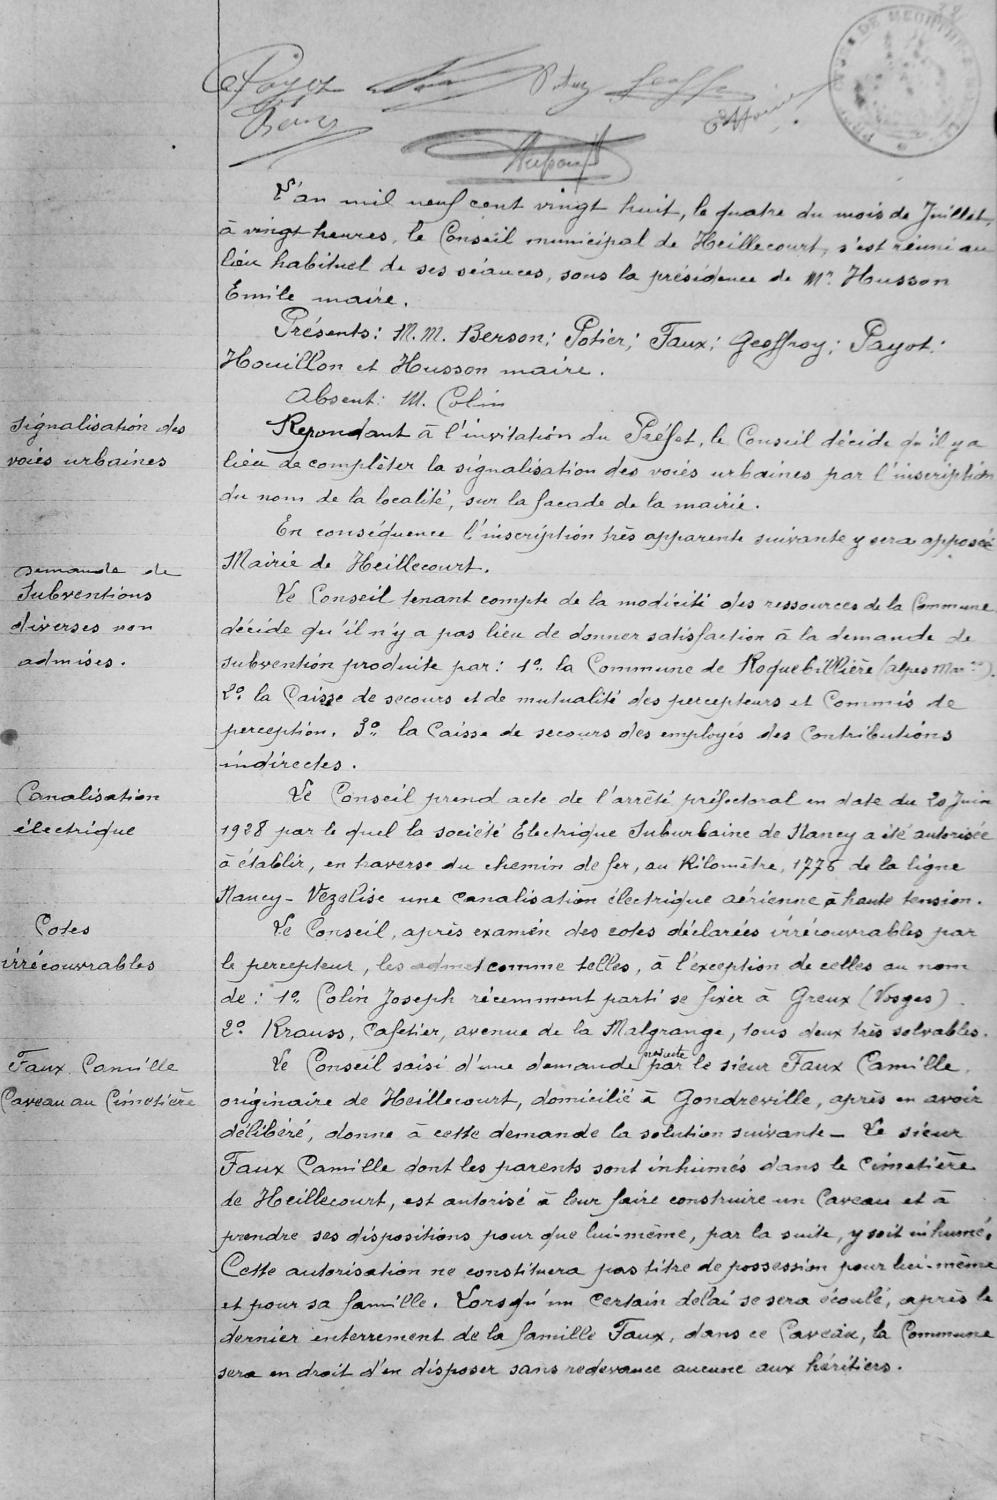 Payot
L'an mil neuf cent vingt huit, le quatre du mois de Juillet,
à vingt heures, le Conseil municipal de Heillecourt, s'est réuni au
lieu habituel de ses séances, sous la présidence de Mr. Husson
Emile maire.
Présents: M.M. Berson; Potier; Faux; Geoffroy; Payot;
Houillon et Husson maire.
Absent: M. Colin
Signalisation des
voies urbaines
Repondant à l'invitation du Préfet, le Conseil décide qu'il y a
lieu de complèter la signalisation des voies urbaines par l'inscription
du nom de la localité, sur la facade de la mairie.
En conséquence l'inscription très apparente suivante y sera apposée
Mairie de Heillecourt.
Demande de
Subventions
diverses non
admises.
Le Conseil tenant compte de la modicité des ressources de la Commune
décide qu'il n'y a pas lieu de donner satisfaction à la demande de
subvention produite par: 1º la Commune de Roquebillière (Alpes Mar.mes).
2º la Caisse de secours et de mutualité des percepteurs et Commis de
perception. 3º la Caisse de secours des employés des Contributions
indirectes.
Canalisation
électrique
Le Conseil prend acte de l'arrêté préfectoral en date du 20 Juin
1928 par le quel la société Electrique Suburbaine de Nancy a été autorisée
à établir, en traverse du chemin de fer, au Kilomètre, 1776 de la ligne
Nancy - Vezelise une canalisation électrique aérienne à haute tension.
Cotes
irrécouvrables
Le Conseil, après examen des cotes déclarées irrécouvrables par
le percepteur, les admet comme telles, à l'exception de celles au nom
de: 1º Colin Joseph récemment parti se fixer à Greux (Vosges).
2º Krauss, Cafetier, avenue de la Malgrange, tous deux très solvables.
Faux Camille
Caveau au Cimetière
Le Conseil saisi d'une demande par le sieur Faux Camille,
originaire de Heillecourt, domicilié à Gondreville, après en avoir
délibéré, donne à cette demande la solution suivante - Le sieur
Faux Camille dont les parents sont inhumés dans le cimetière
de Heillecourt, est autorisé à leur faire construire un Caveau et à
prendre ses dispositions pour que lui-même, par la suite, y soit inhumé.
Cette autorisation ne constituera pas titre de possession pour lui-même
et pour sa famille. Lorsqu'un certain délai se sera écoulé, après le
dernier enterrement de la famille Faux, dans ce Caveau, la Commune
sera en droit d'en disposer sans redevance aucune aux héritiers.